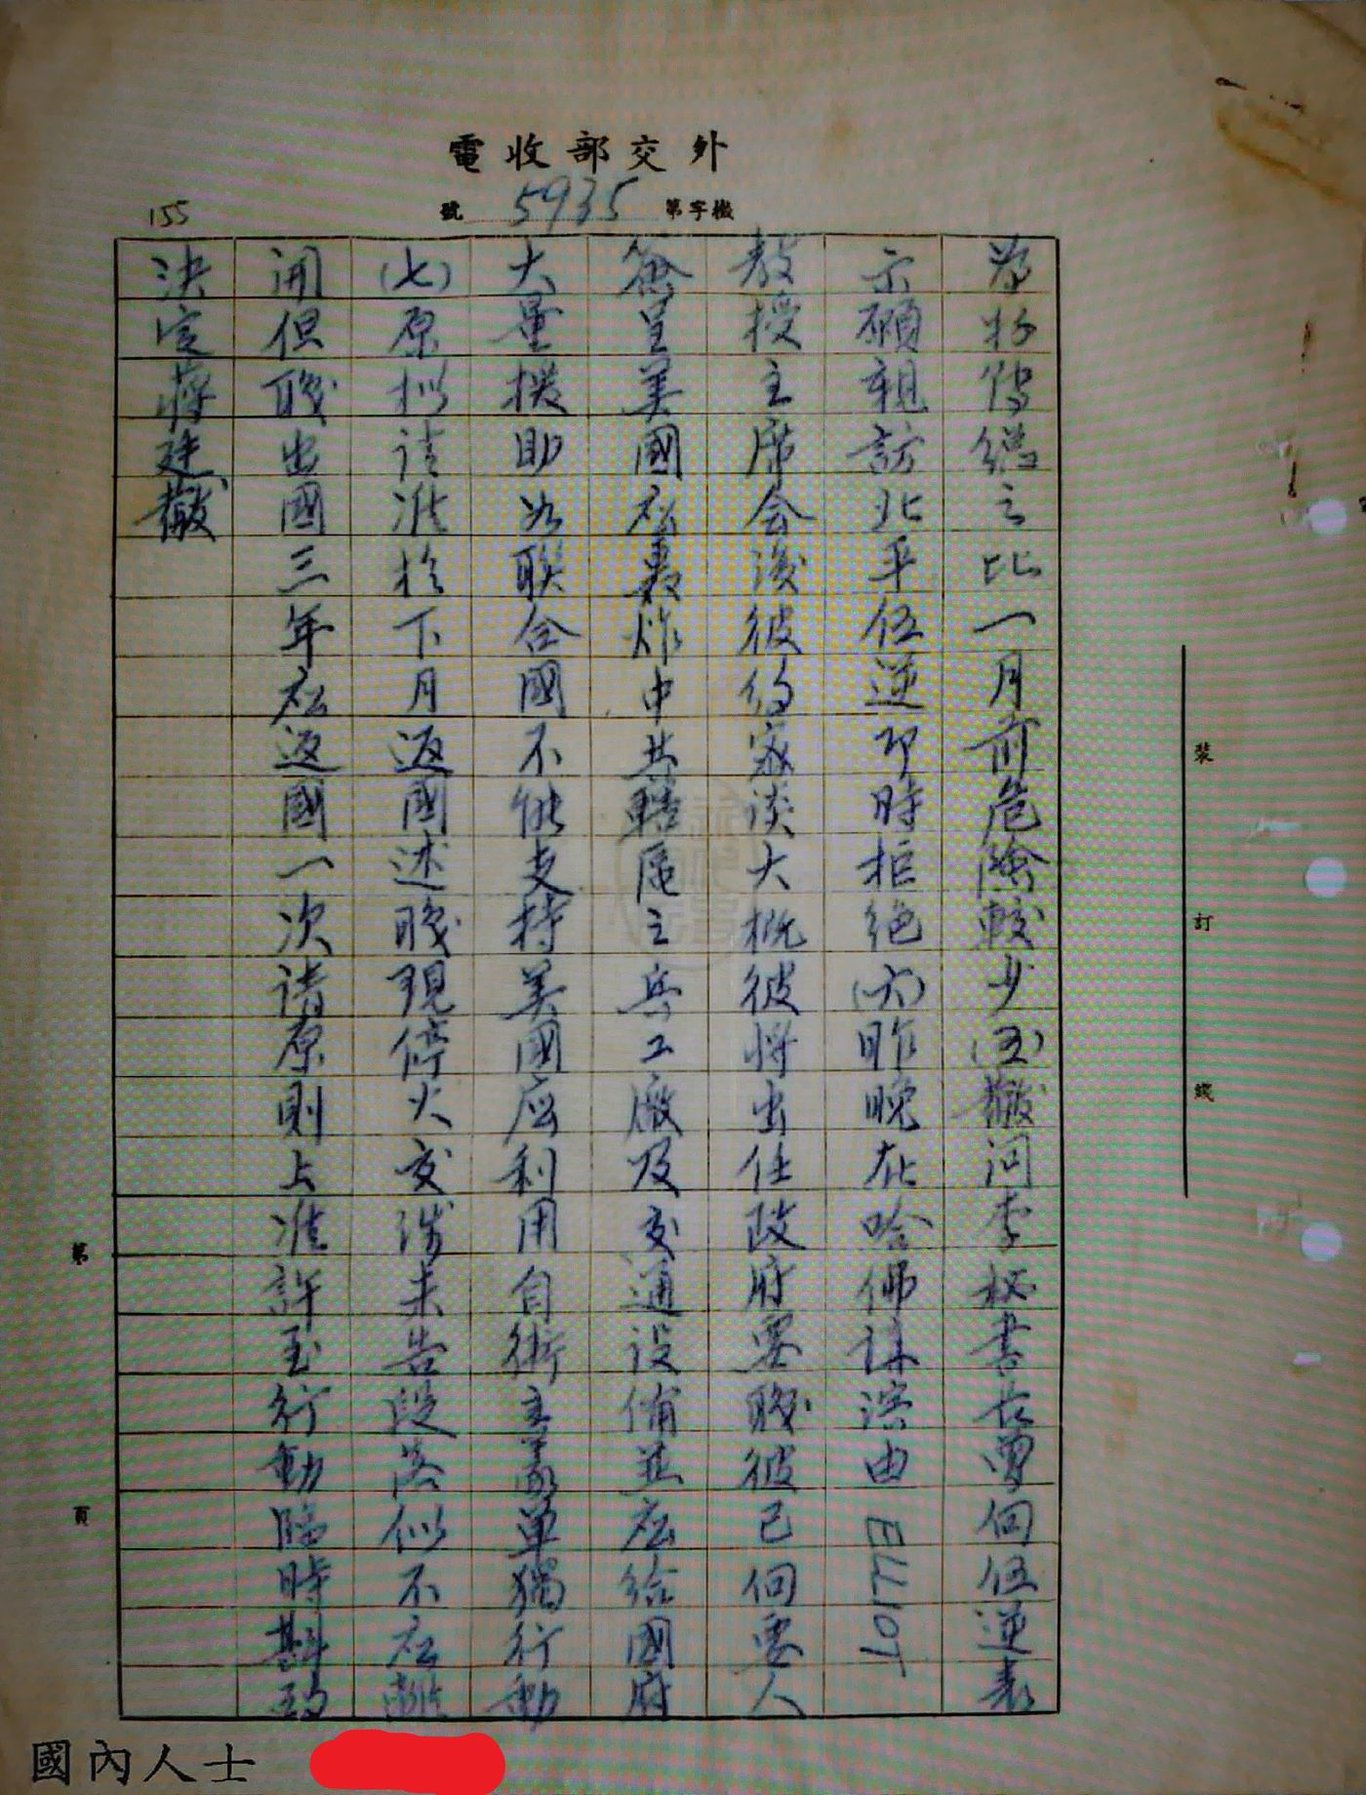 外交部收電
機字第5935號
155
總之比一月前危險較少(五)黻問李秘書長曾向伍逆表
示願親訪北平伍逆即時拒絕(六)昨晚在哈佛講演由ELLIOT
教授主席会後彼約密談大概彼將出任政府要職彼已向要人
簽呈美國應轟炸中共轄區之兵工廠及交通設備並應給國府
大量援助如聯合國不能支持美國應利用自衛主義單獨行動
(七)原擬請准於下月返國述職現停火交涉未告段落似不應離
開但職出國三年應返國一次請原則上准許至行動臨時斟酌
決定蔣廷黻
裝
訂
線
第
頁
國內人士